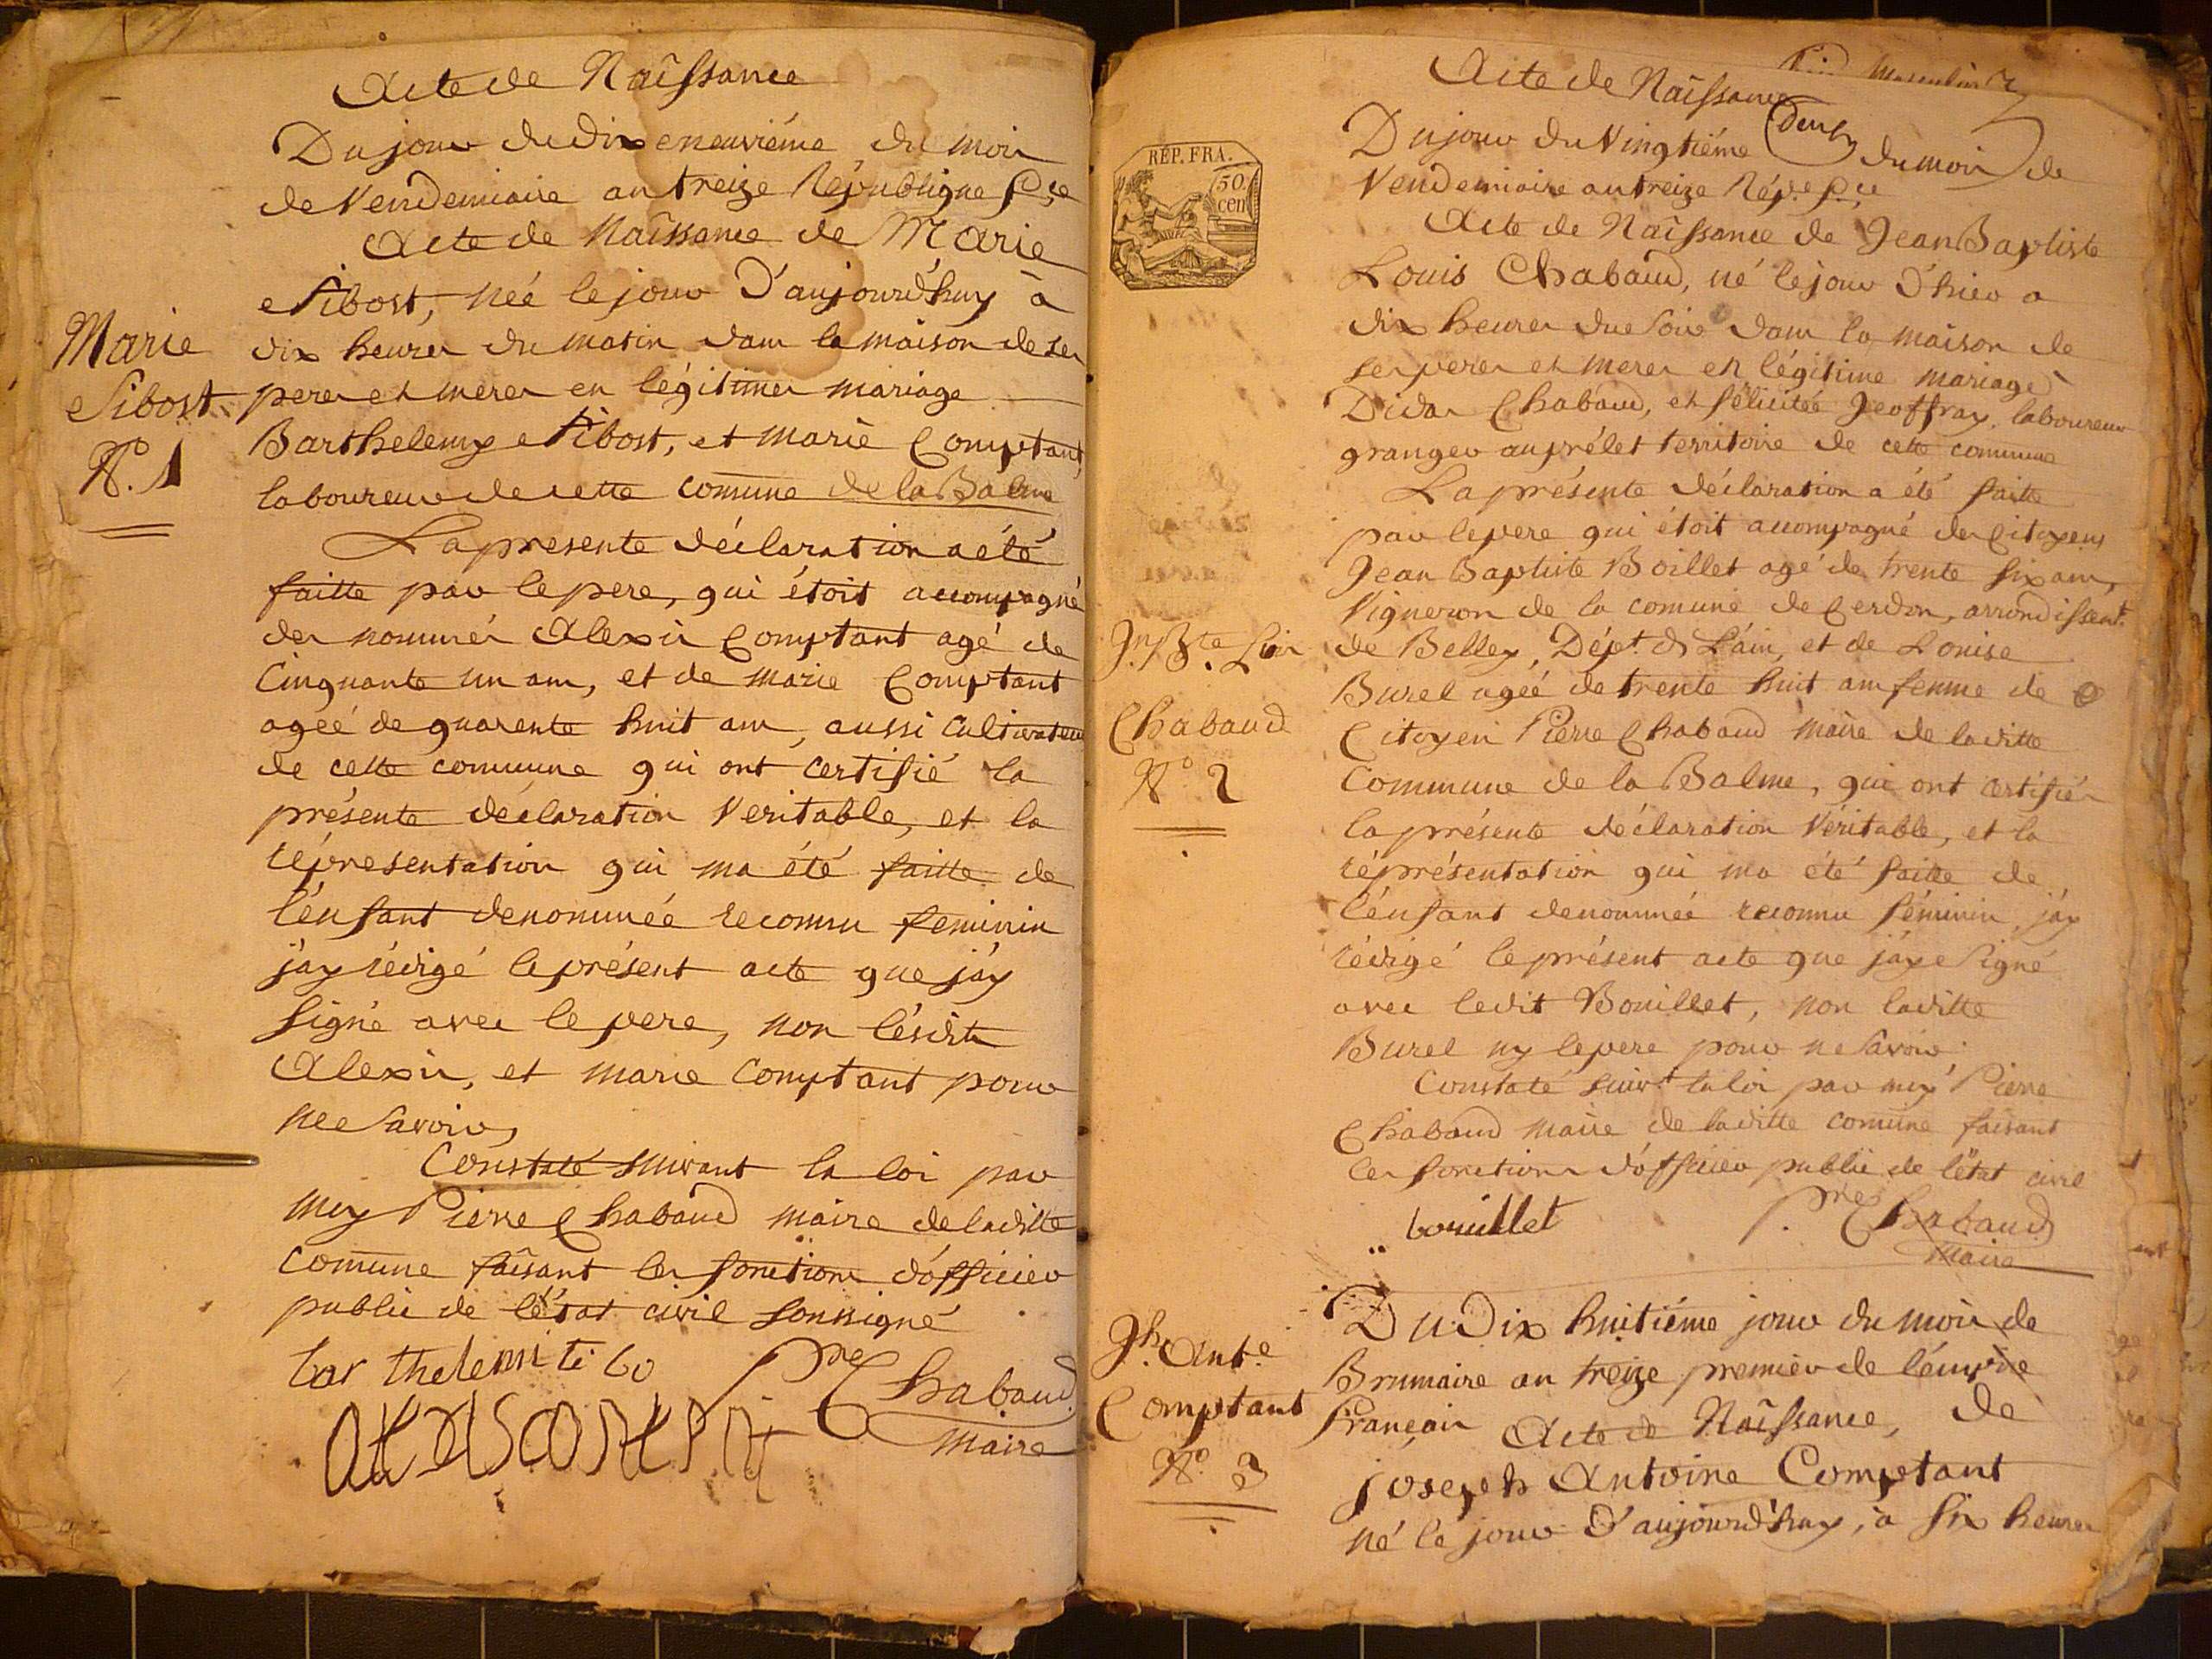 Acte de Naîssance
Du jour du dixeneuviéme du mois
de Vendemiaire an treize République fçse
Acte de Naîssance de Marie
Tibost, née le jour D'aujourd'huy à
dix heures du matin dans la maison de ses
peres et meres en légitimes mariage
Barthelemy Tibost, et marie Comptant,
laboureur de cette comune de la Balme
La presente déclaration a été
faitte par le pere, qui étoit accompagné
des nommés Alexis Comptant agé de
Cinquante un ans, et de marie Comptant
ageé de quarente huit ans, aussi Cultivateur
de cette commune qui ont certifié la
présente déclaration Veritable, et la
répresentation qui ma été faitte de
l'énfant denommée reconnu feminin
j'ay rédigé le présent acte que j'áy
signé avec le pere, non lésdits
Alexis, et marie Comptant pour
ne Savoir,
Constaté suivant la loi par
moy Pierre Chabaud maire de laditte
comune faîsant les fonctions d'officier
public de létat civil soussigné
bar thelemi ti bo
Pre Chabaud
Maire
Marie
Tibost
No. 1
Acte de Naîssance
masculin
REP. FRA.
50.
cen
Du jour du Vingtiéme deux du mois de
Vendemiaire an treize Rép.e f.çse
Acte de Naîssance de Jean Baptiste
Louis Chabaud, né le jour d'hier a
dix heures du soir dans la maison de
ses peres et meres en légitime mariage
Didas Chabaud, et félicitée Jeoffray, laboureur
granger au prélet territoire de cette commune
La présente déclaration a été faitte
par le pere qui étoit accompagné des Citoyens
Jean Baptiste Boillet agé de trente six ans,
Vigneron de la comune de Cerdon, arrondissent.
de Belley, Dépt. de L'áin, et de Louise
Burel ageé de trente huit ans femme de
Citoyen Pierre Chabaud maire de laditte
Commune de la Balme, qui ont certifiés
la présente déclaration Véritable, et la
réprésentation qui ma été faitte de
l'énfant denommée reconnu féminin, j'áy
rédigé le présent acte que j'áy Signé
avec ledit Bouillet, non laditte
Burel ny le pere pour ne Savoir
Constaté suivt. la loi par moy Pierre
Chabaud maire de laditte comune faisant
les fonctions d'officier public de l'état civil
bouillet
Pre Chabaud
Maire
Jn. Bte. Louis
Chabaud
No. 2
Du Dix huitiéme jour du mois de
Brumaire an treize premier de l'émpire
français Acte de Naîssance, de
joseph Antoine Comptant
né le jour D'aujourd'huy, à six heures
Jh. Ante.
Comptant
No. 3